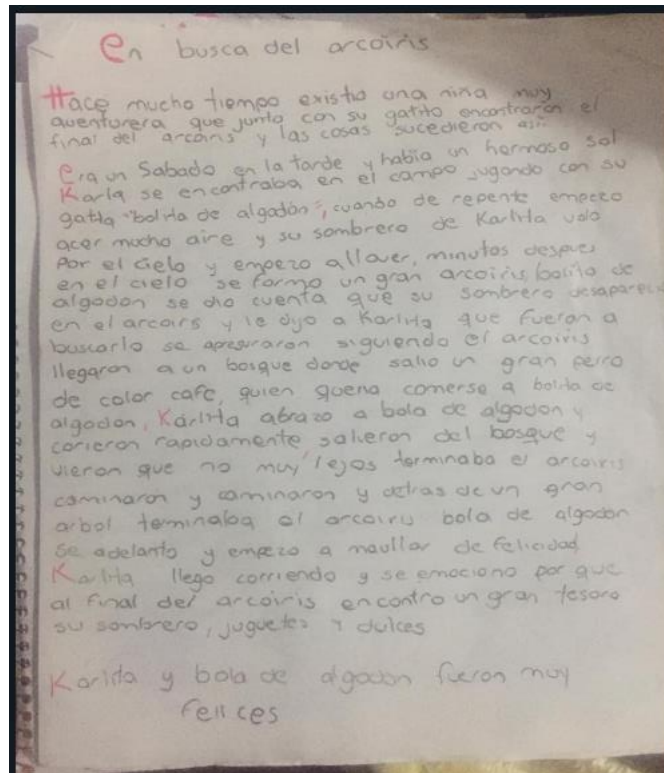 En busca del arcoiris
Hace mucho tiempo existio una niña muy
aventurera que junto con su gatito encontraron el
final del arcoiris y las cosas sucedieron asi:
Era un Sabado en la tarde y había un hermoso sol
Karla se encontraba en el campo jugando con su
gatita "bolita de algodón", cuando de repente empezo
acer mucho aire y su sombrero de Karlita volo
Por el cielo y empezo allover, minutos despues
en el cielo se formo un gran arcoiris bolita de
algodon se dio cuenta que su sombrero desaparecio
en el arcoirs y le dijo a Karlita que fueran a
buscarlo se apresuraron siguiendo el arcoiris
llegaron a un bosque donde salio un gran perro
de color cafe, quien queria comerse a bolita de
algodon, Karlita abrazo a bola de algodon y
corieron rapidamente salieron del bosque y
vieron que no muy lejos terminaba el arcoiris
caminaron y caminaron y detras de un gran
arbol terminaba el arcoiris bola de algodon
se adelanto y empezo a maullar de felicidad
Karlita llego corriendo y se emociono por que
al final del arcoiris encontro un gran tesoro
su sombrero, juguetes y dulces
Karlita y bola de algodon fueron muy
felices